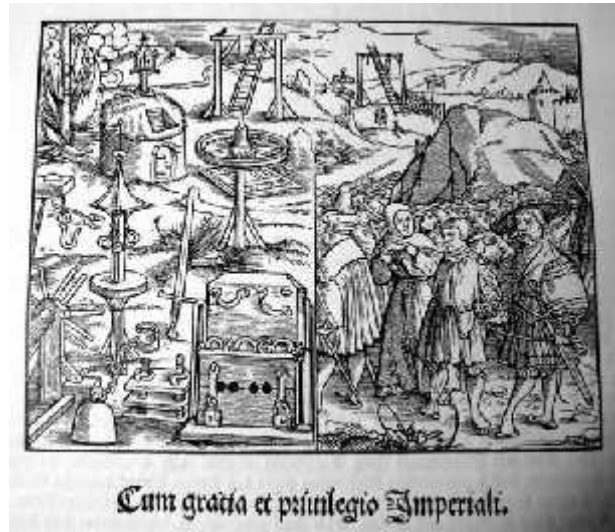 Cum gratia et priuilegio Imperiali.